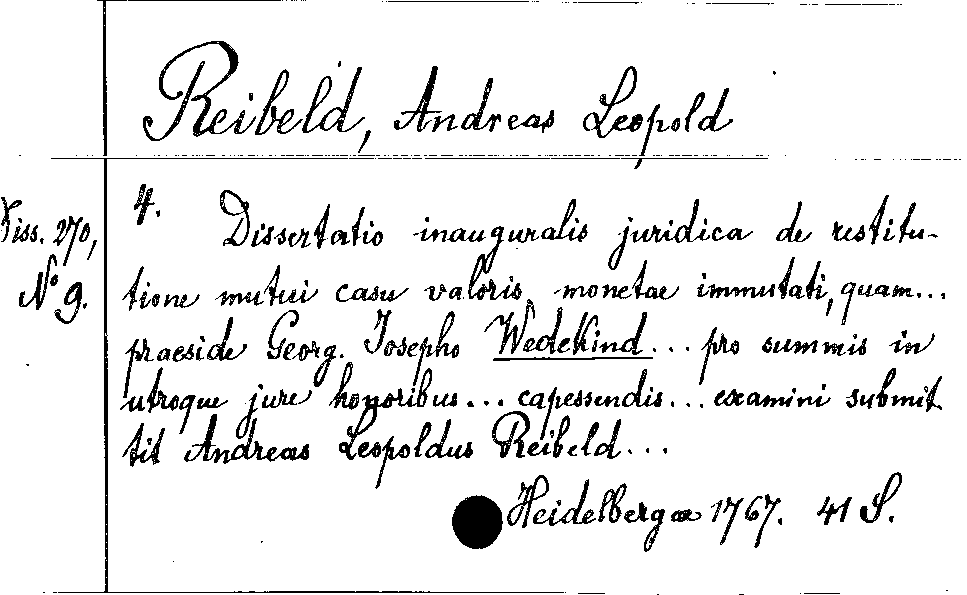 Reibeld, Andreas Leopold
Diss. 270,
No 9.
4. Dissertatio inauguralis juridica de restitu-
tione mutui casu valoris monetae immutati, quam...
praeside Georg. Josepho Wedekind... pro summis in
utroque jure honoribus... capessendis... examini submit
tit Andreas Leopoldus Reibeld...
Heidelbergae 1767. 41 S.